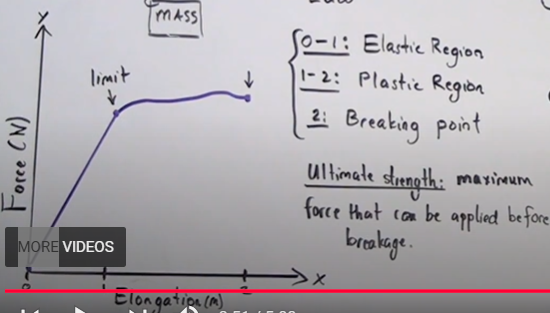 MASS
Y
limit
Force (N)
0-1: Elastic Region
1-2: Plastic Region
2: Breaking point
Ultimate strength: maximum
force that can be applied before
breakage.
MORE VIDEOS
X
0 1 2
Elongation (m)